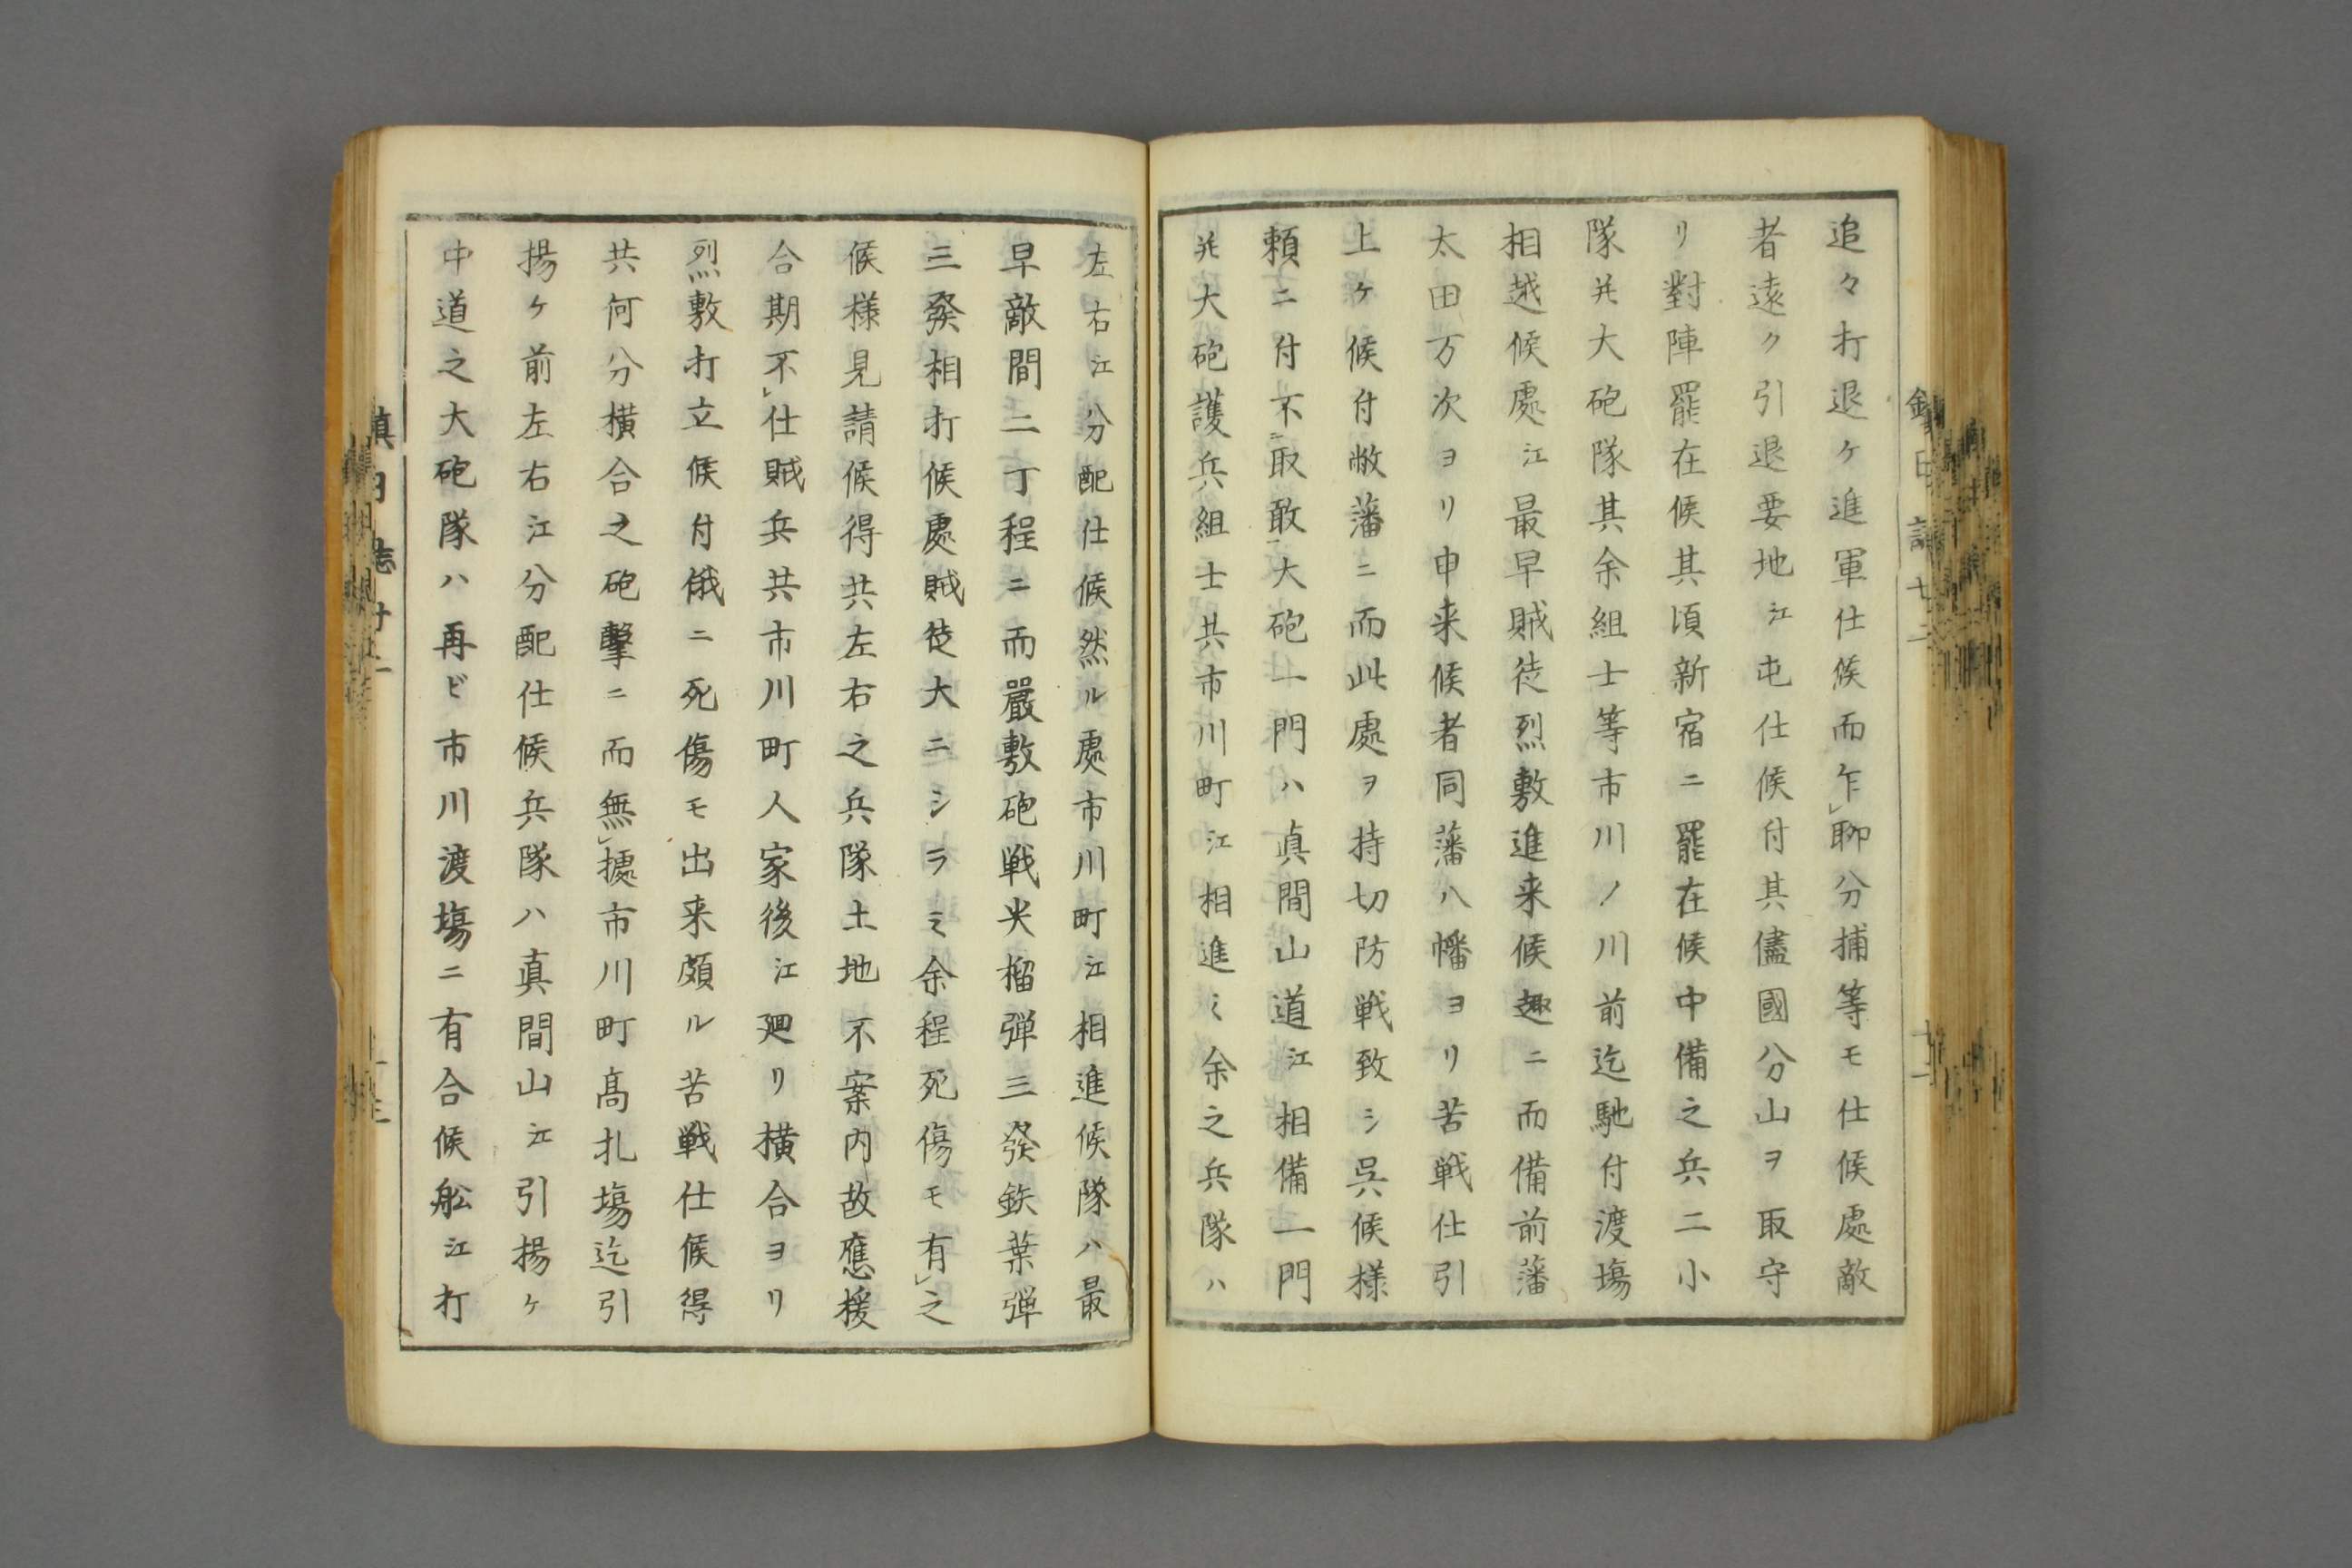 追々打退ケ進軍仕候而乍㆑聊分捕等モ仕候處敵
者遠ク引退要地江屯仕候付其儘國分山ヲ取守
リ對陣罷在候其頃新宿ニ罷在候中備之兵二小
隊幷大砲隊其余組士等市川ノ川前迄馳付渡塲
相越候處江最早賊徒烈敷進来候趣ニ而備前藩
太田万次ヨリ申来候者同藩八幡ヨリ苦戦仕引
上ケ候付敝藩ニ而此處ヲ持切防戦致シ呉候様
頼ニ付不㆓取敢㆒大砲一門ハ真間山道江相備一門
幷大砲護兵組士共市川町江相進ミ余之兵隊ハ
左右江分配仕候然ル處市川町江相進候隊ハ最
早敵間二丁程ニ而嚴敷砲戦尖榴弾三發鉄葉弾
三發相打候處賊徒大ニシラミ余程死傷モ有㆑之
候様見請候得共左右之兵隊土地不案内故應援
合期不㆑仕賊兵共市川町人家後江廻リ横合ヨリ
烈敷打立候付俄ニ死傷モ出来頗ル苦戦仕候得
共何分横合之砲撃ニ而無㆑㨿市川町髙札塲迄引
揚ケ前左右江分配仕候兵隊ハ真間山江引揚ケ
中道之大砲隊ハ再ビ市川渡塲ニ有合候舩江打